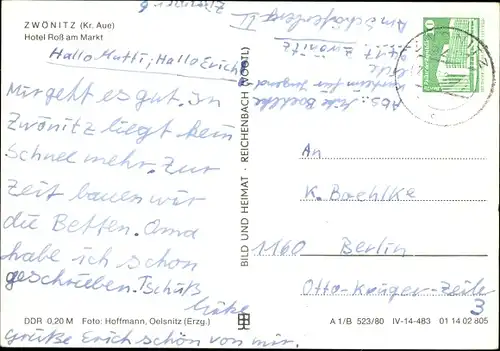 ZWÖNITZ (Kr. Aue)
Hotel Roß am Markt
Hallo Mutti, Hallo Erich
Mir geht es gut. In
Zwönitz liegt kein
Schnee mehr. Zur
Zeit bauen wir
die Betten. Oma
habe ich schon
geschrieben. Tschüß
grüße Erich schön von mir.
DDR 0,20 M Foto: Hoffmann, Oelsnitz (Erzg.)
BILD UND HEIMAT · REICHENBACH (VOGTL)
Zwönitz
Am Schäferberg
10
An
K. Boehlke
1160 Berlin
Otto-Krüger-Zeile
3
A 1/B 523/80 IV-14-483 01 14 02 805